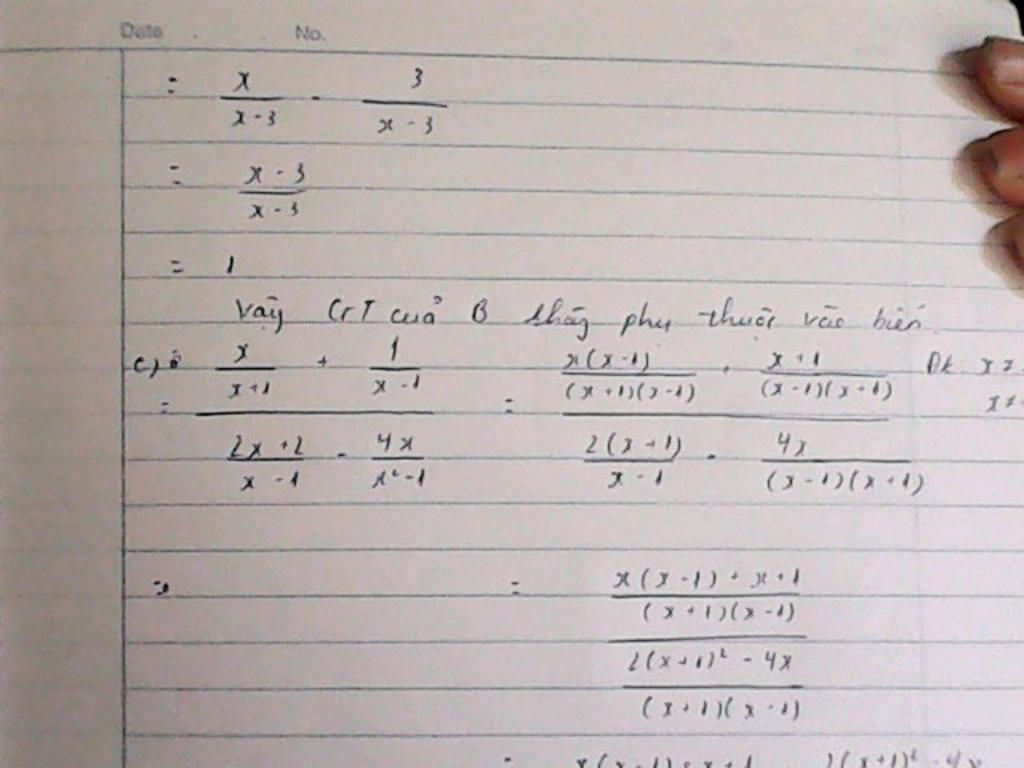 Date . No.
= x/(x-3) - 3/(x-3)
= (x-3)/(x-3)
= 1
Vậy GT của B không phụ thuộc vào biến
c, = (x/(x+1) + 1/(x-1)) / ((2x+2)/(x-1) - 4x/(x²-1)) = (x(x-1)/((x+1)(x-1)) + (x+1)/((x-1)(x+1))) / (2(x+1)/(x-1) - 4x/((x-1)(x+1))) Đk x ≠
x ≠
= ((x(x-1)+x+1)/((x+1)(x-1))) / ((2(x+1)²-4x)/((x+1)(x-1)))
= x(x-1)+x+1 2(x+1)²-4x